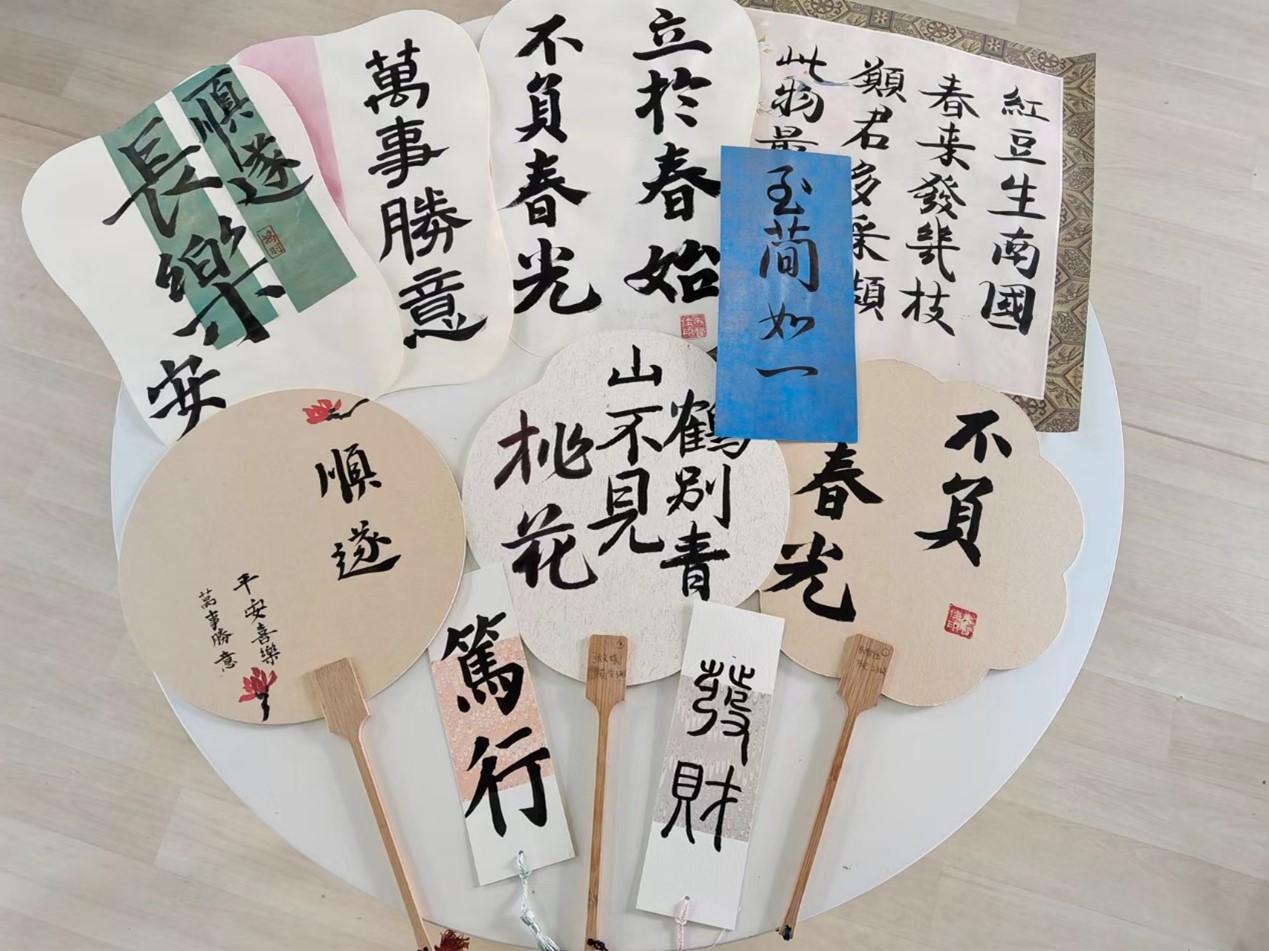 順遂
長樂
安
萬事勝意
立於春始
不負春光
紅豆生南國
春来發幾枝
願君多采擷
此物最
至蕳如一
順遂
平安喜樂
萬事勝意
鶴別青
山不見
桃花
不負
春光
篤行
發財